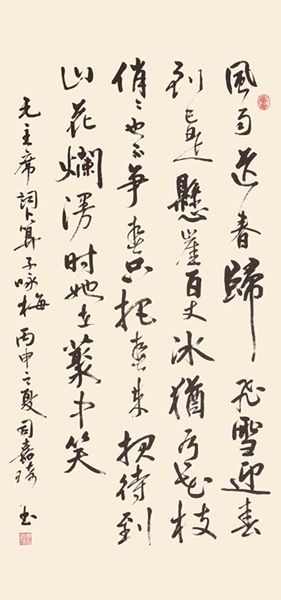 風雨送春歸飛雪迎春
到已是懸崖百丈冰猶有花枝
俏〻也不争春只把春来报待到
山花爛漫时她在叢中笑
毛主席詞卜算子咏梅丙申之夏司嘉琦书